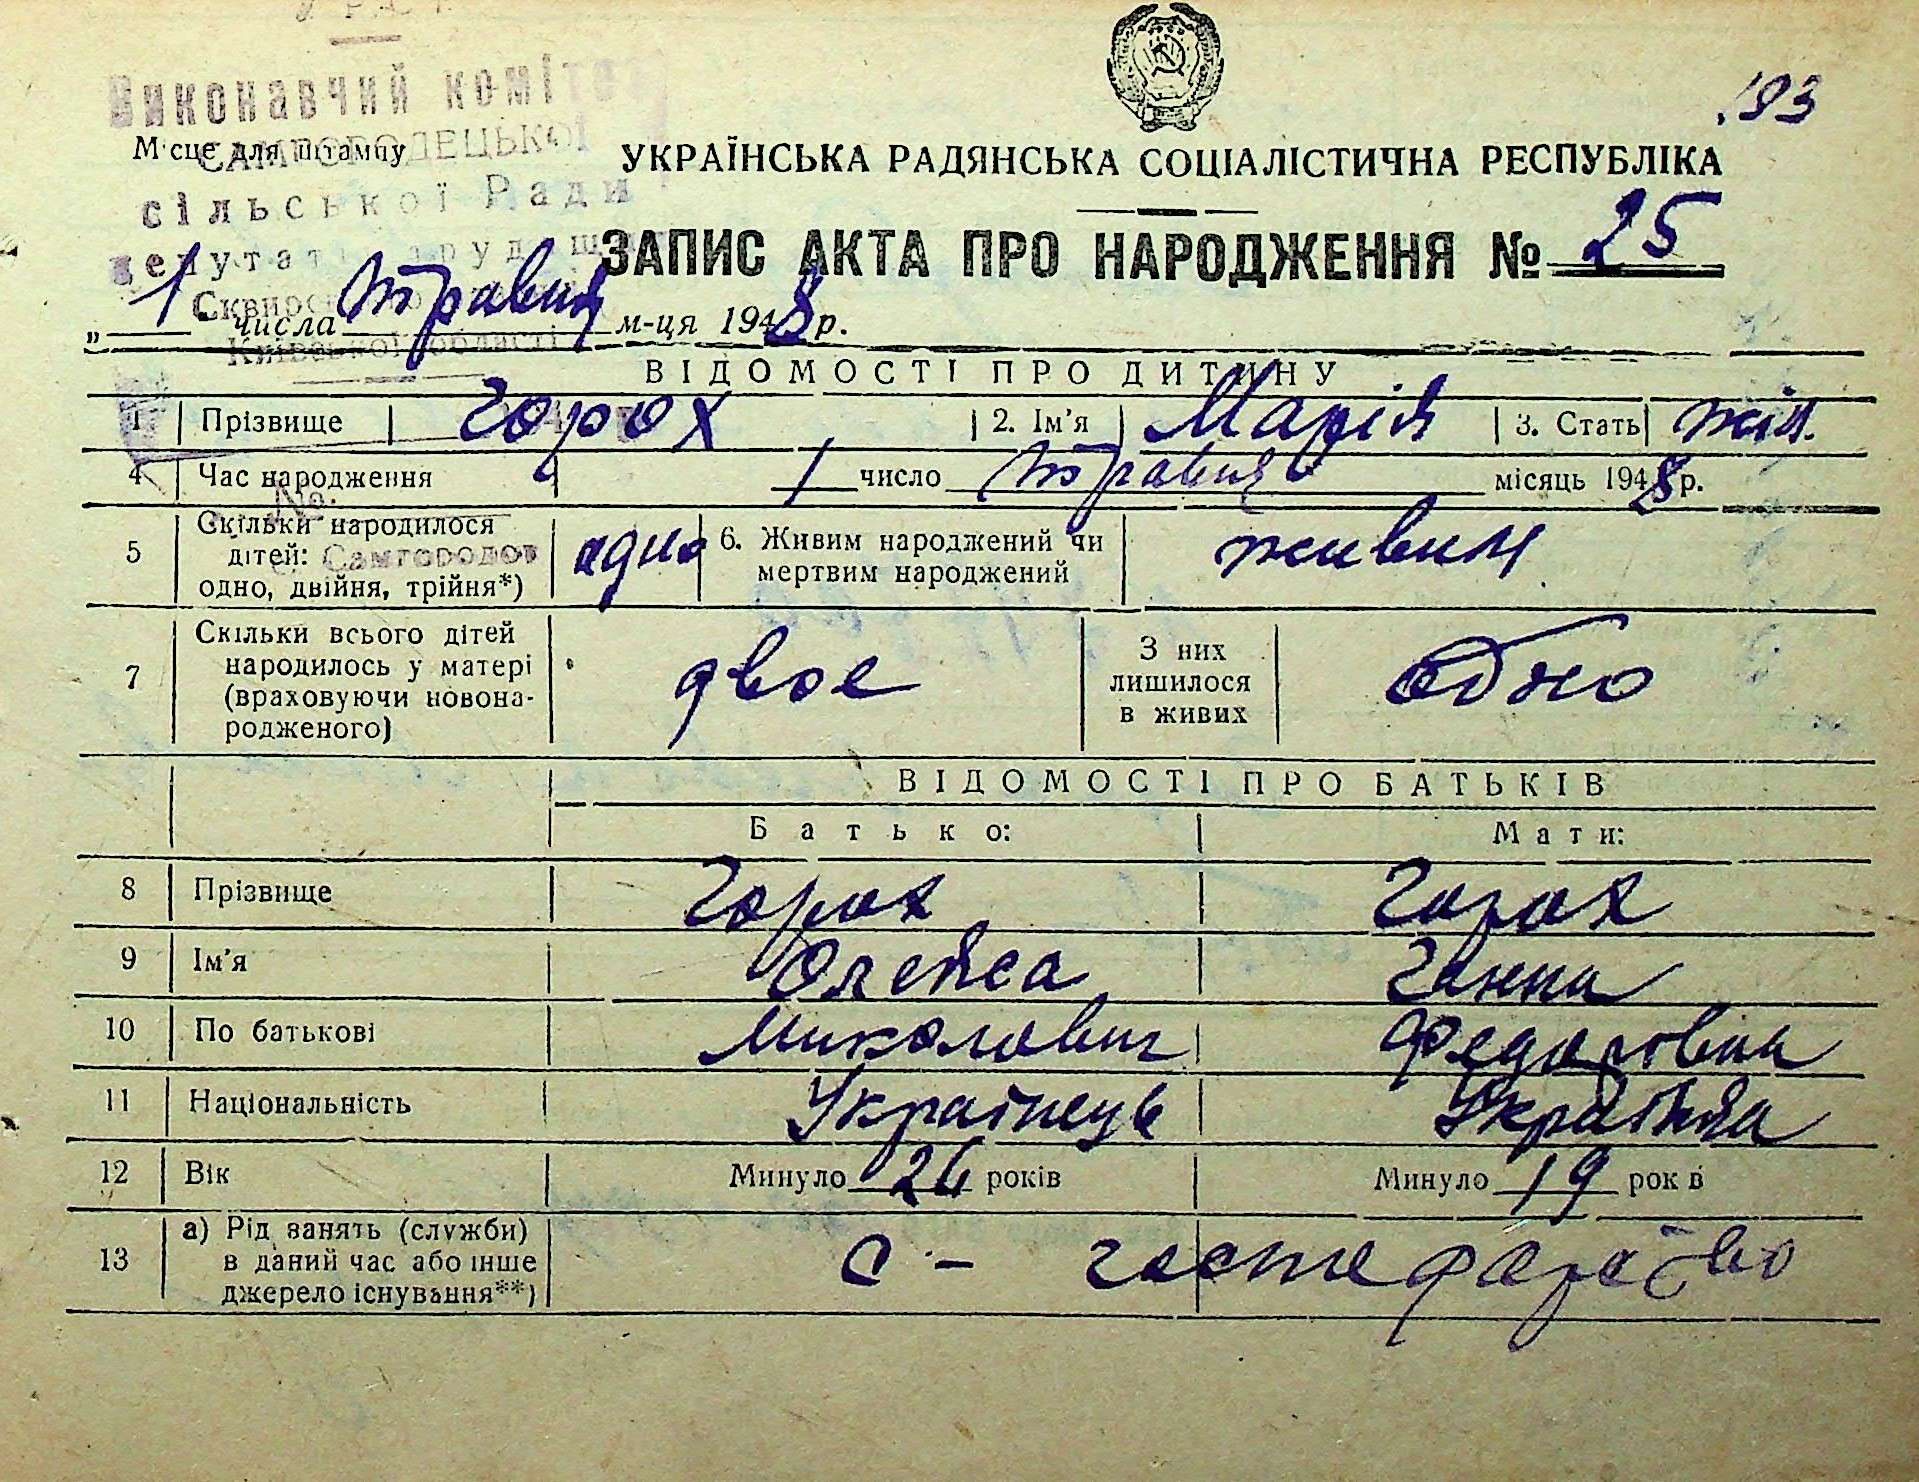 Виконавчий комітет
183
Місце для штампу
САМГОРОДЕЦЬКОЇ
УКРАЇНСЬКА РАДЯНСЬКА СОЦІАЛІСТИЧНА РЕСПУБЛІКА
сільської Ради
ЗАПИС АКТА ПРО НАРОДЖЕННЯ № 25
„ 1 " числа травня м-ця 1948 р.
Київської області
ВІДОМОСТІ ПРО ДИТИНУ
1 Прізвище Горох 2. Ім'я Марія 3. Стать жін.
4 Час народження 1 число травня місяць 1948 р.
№.
5 Скільки народилося
дітей: Самгородок
одно, двійня, трійня*) одно 6. Живим народжений чи
мертвим народжений живим
7 Скільки всього дітей
народилось у матері
(враховуючи новона-
родженого) двое З них
лишилося
в живих одно
ВІДОМОСТІ ПРО БАТЬКІВ
Батько: Мати:
8 Прізвище Горох Горох
9 Ім'я Олекса Ганна
10 По батькові Миколович Федоровна
11 Національність Українець Українка
12 Вік Минуло 26 років Минуло 19 років
13 а) Рід занять (служби)
в даний час або інше
джерело існування**) с -